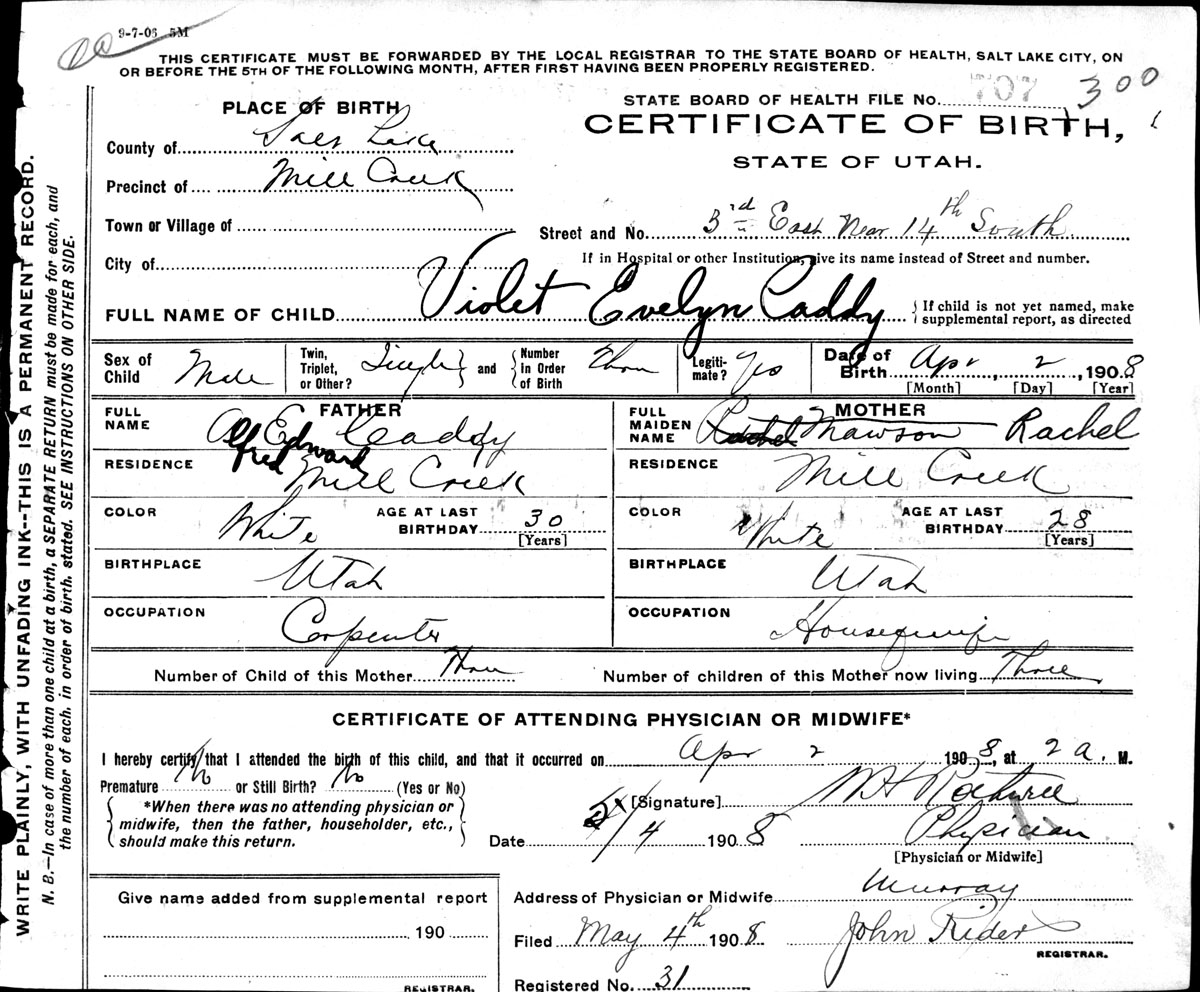 9-7-06 5M
THIS CERTIFICATE MUST BE FORWARDED BY THE LOCAL REGISTRAR TO THE STATE BOARD OF HEALTH, SALT LAKE CITY, ON
OR BEFORE THE 5TH OF THE FOLLOWING MONTH, AFTER FIRST HAVING BEEN PROPERLY REGISTERED.
WRITE PLAINLY, WITH UNFADING INK--THIS IS A PERMANENT RECORD.
N. B.—In case of more than one child at a birth, a SEPARATE RETURN must be made for each, and
the number of each, in order of birth, stated. SEE INSTRUCTIONS ON OTHER SIDE.
PLACE OF BIRTH
County of Salt Lake
Precinct of Mill Creek
Town or Village of
City of
STATE BOARD OF HEALTH FILE No. 707 300
CERTIFICATE OF BIRTH,
STATE OF UTAH.
Street and No. 3rd East Near 14th South
If in Hospital or other Institution, give its name instead of Street and number.
FULL NAME OF CHILD Violet Evelyn Caddy {If child is not yet named, make
supplemental report, as directed
Sex of Child Male
Twin, Triplet, or Other? Single } and { Number In Order of Birth
Legiti-mate? Yes
Date of Birth Apr 2, 1908
[Month] [Day] [Year]
FATHER
FULL NAME Alfred Edward Caddy
RESIDENCE Mill Creek
COLOR White AGE AT LAST BIRTHDAY 30
[Years]
BIRTHPLACE Utah
OCCUPATION Carpenter
MOTHER
FULL MAIDEN NAME Rachel Mawson Rachel
RESIDENCE Mill Creek
COLOR White AGE AT LAST BIRTHDAY 28
[Years]
BIRTHPLACE Utah
OCCUPATION Housewife
Number of Child of this Mother Three Number of children of this Mother now living Three
CERTIFICATE OF ATTENDING PHYSICIAN OR MIDWIFE*
I hereby certify that I attended the birth of this child, and that it occurred on Apr 2 1908, at 2 a. M.
Premature No or Still Birth? No (Yes or No)
{*When there was no attending physician or
midwife, then the father, householder, etc.,
should make this return.}
[Signature] W H Rothwell
Date /4 1908 Physician
[Physician or Midwife]
Give name added from supplemental report
190
REGISTRAR.
Address of Physician or Midwife Murray
Filed May 4th 1908 John Rider
REGISTRAR.
Registered No. 31